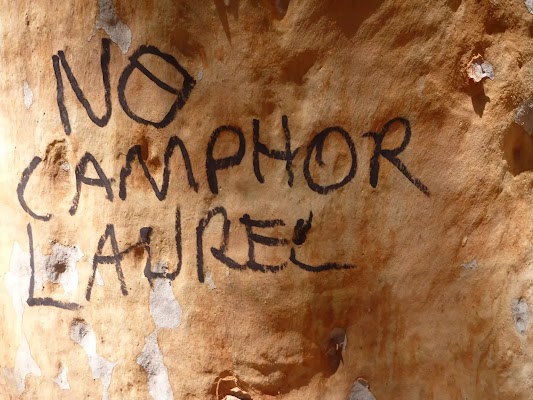 NO
CAMPHOR
LAUREL